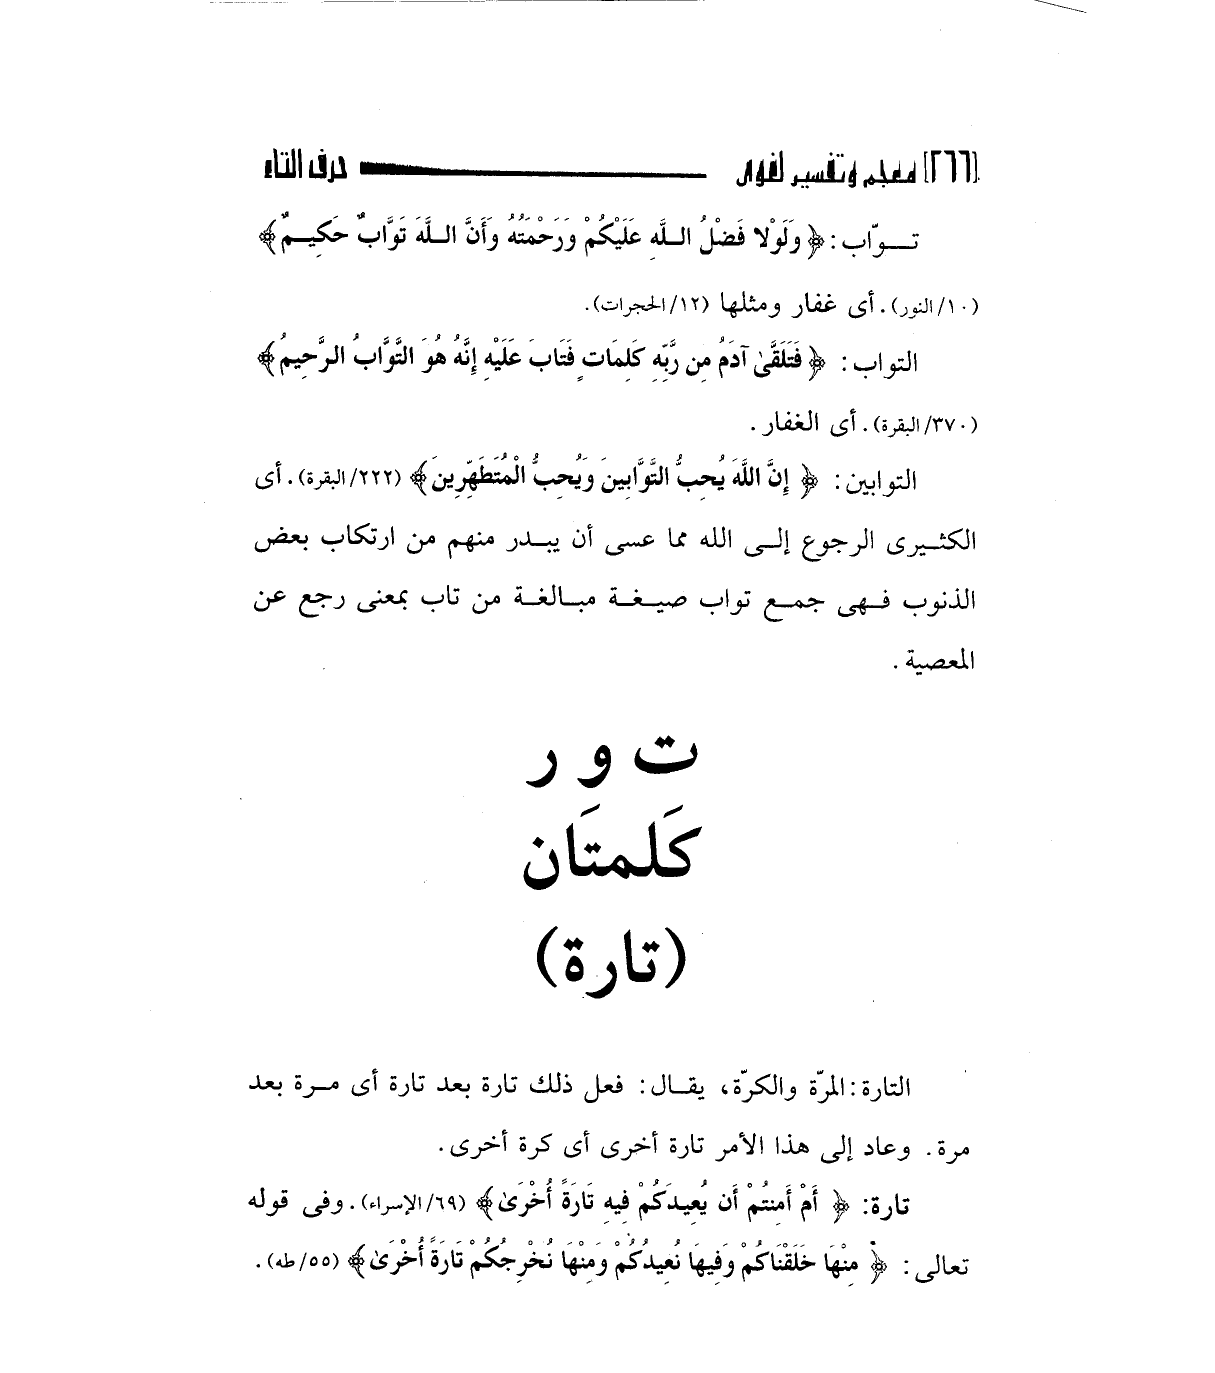 [٢٦٦] معجم وتفسير لغوى حرف التاء
تـــوّاب: ﴿ وَلَوْلا فَضْلُ اللَّه عَلَيْكُمْ وَرَحْمَتُهُ وَأَنَّ اللَّهَ تَوَّابٌ حَكِيمٌ﴾
(١٠/النور). أى غفار ومثلها (١٢/الحجرات).
التواب: ﴿ فَتَلَقَّىٰ آدَمُ مِن رَّبِّهِ كَلِمَاتٍ فَتَابَ عَلَيْهِ إِنَّهُ هُوَ التَّوَّابُ الرَّحِيمُ﴾
(٣٧٠/البقرة). أى الغفار.
التوابين: ﴿ إِنَّ اللَّهَ يُحِبُّ التَّوَّابِينَ وَيُحِبُّ الْمُتَطَهِّرِينَ﴾ (٢٢٢/البقرة). أى
الكثيرى الرجوع إلى الله مما عسى أن يبدر منهم من ارتكاب بعض
الذنوب فهى جمع تواب صيغة مبالغة من تاب بمعنى رجع عن
المعصية.
ت و ر
كَلمتَان
(تارة)
التارة: المرّة والكرّة، يقال: فعل ذلك تارة بعد تارة أى مرة بعد
مرة. وعاد إلى هذا الأمر تارة أخرى أى كرة أخرى.
تارة: ﴿ أَمْ أَمِنتُمْ أَن يُعِيدَكُمْ فِيهِ تَارَةً أُخْرَىٰ﴾ (٦٩/الإسراء). وفى قوله
تعالى: ﴿ مِنْهَا خَلَقْنَاكُمْ وَفِيهَا نُعِيدُكُمْ وَمِنْهَا نُخْرِجُكُمْ تَارَةً أُخْرَىٰ﴾ (٥٥/طه).